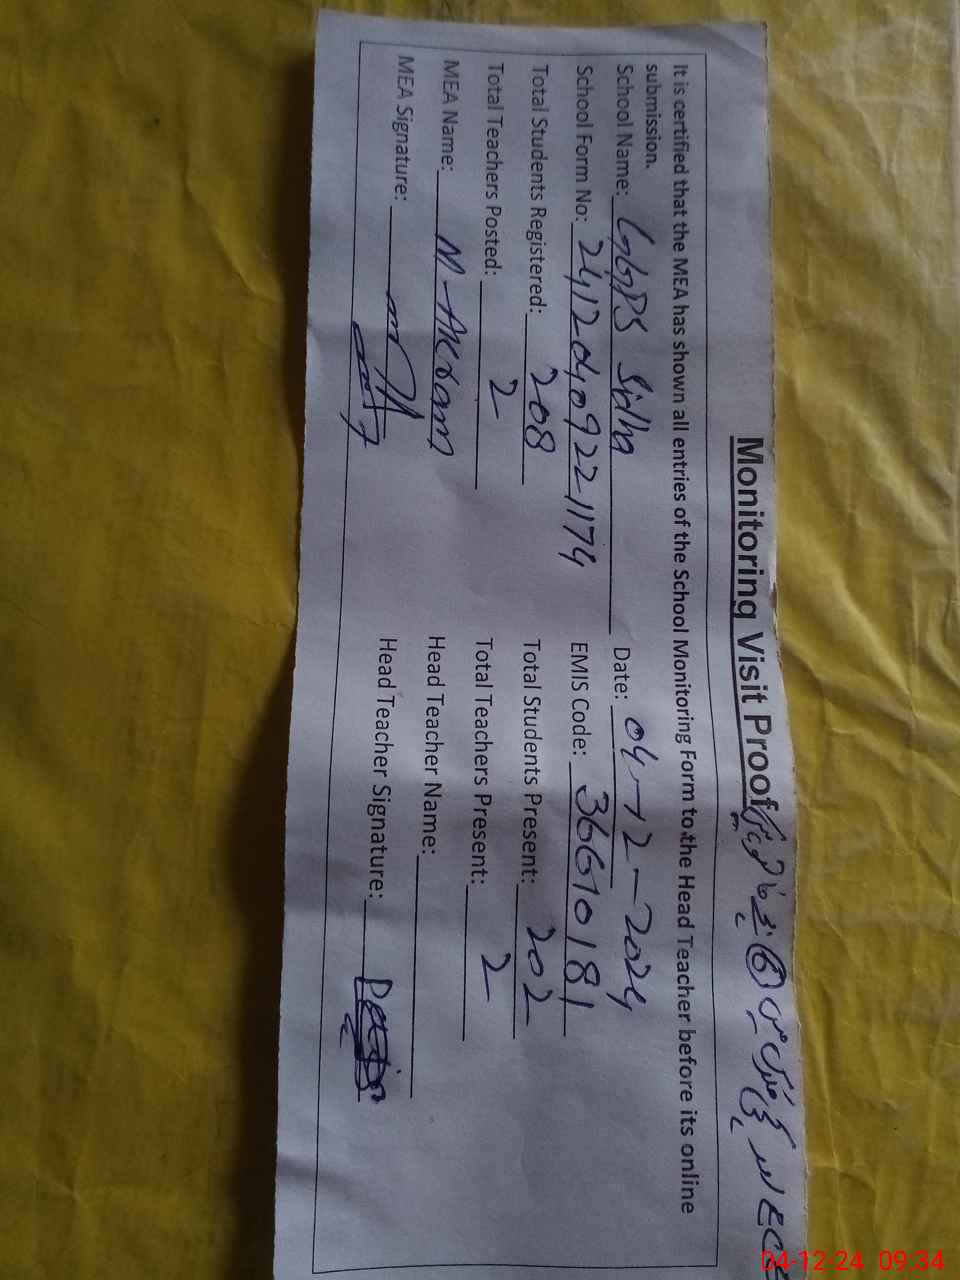 Monitoring Visit Proof
It is certified that the MEA has shown all entries of the School Monitoring Form to the Head Teacher before its online
submission.
School Name: GGPS Sidha Date: 04-12-2024
School Form No: 2412040922 1174 EMIS Code: 36610181
Total Students Registered: 208 Total Students Present: 202
Total Teachers Posted: 2 Total Teachers Present: 2
MEA Name: M-Akram Head Teacher Name:
MEA Signature: Head Teacher Signature:
04-12-24 09:34